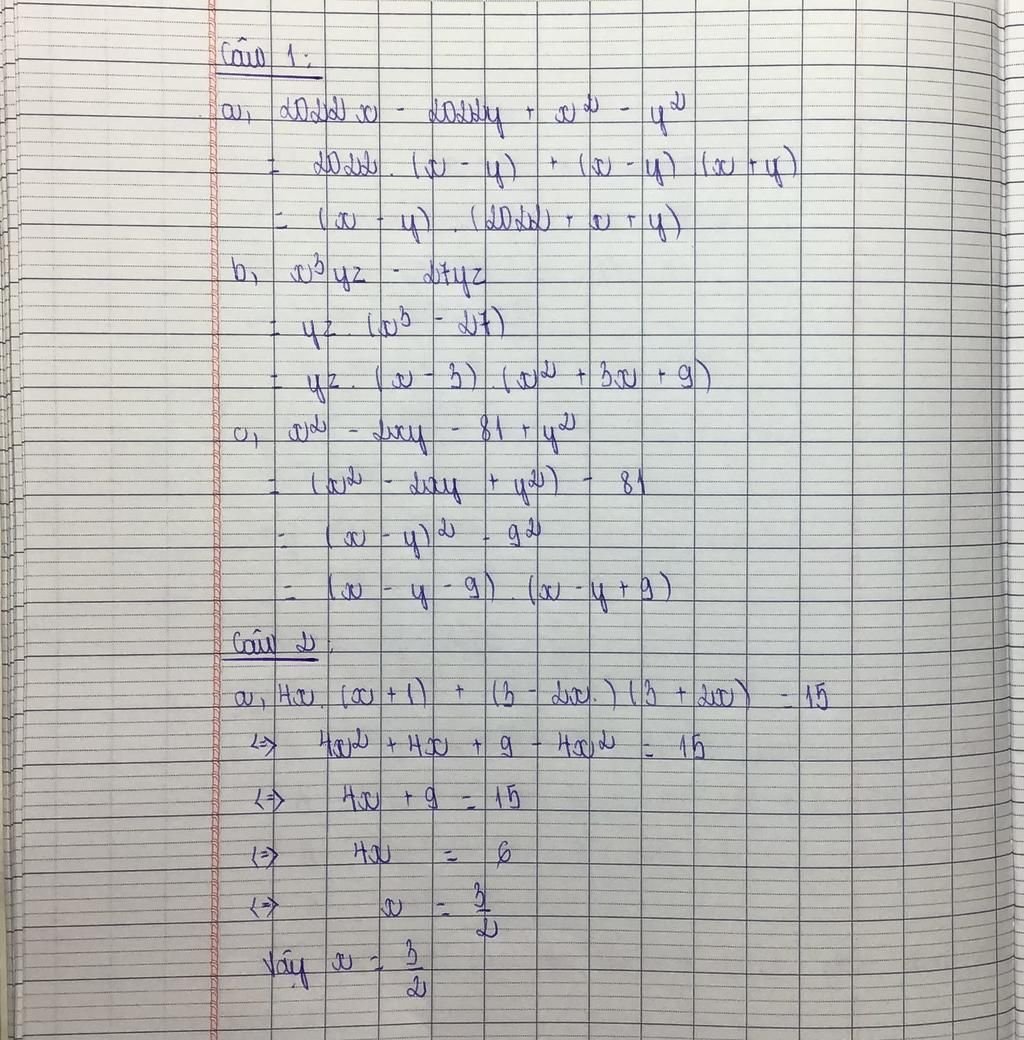 Câu 1:
a, 2022x - 2022y + x² - y²
= 2022.(x - y) + (x - y)(x + y)
= (x - y).(2022 + x + y)
b, x³yz - 27yz
= yz.(x³ - 27)
= yz.(x - 3).(x² + 3x + 9)
c, x² - 2xy - 81 + y²
= (x² - 2xy + y²) - 81
= (x - y)² - 9²
= (x - y - 9).(x - y + 9)
Câu 2:
a, 4x.(x + 1) + (3 - 2x.)(3 + 2x) = 15
<=> 4x² + 4x + 9 - 4x² = 15
<=> 4x + 9 = 15
<=> 4x = 6
<=> x = 3/2
Vậy x = 3/2